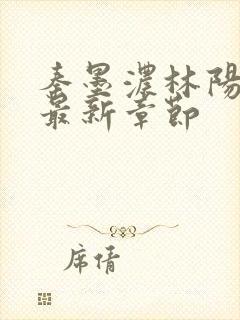 秦墨濃林陽
最新章節
席情